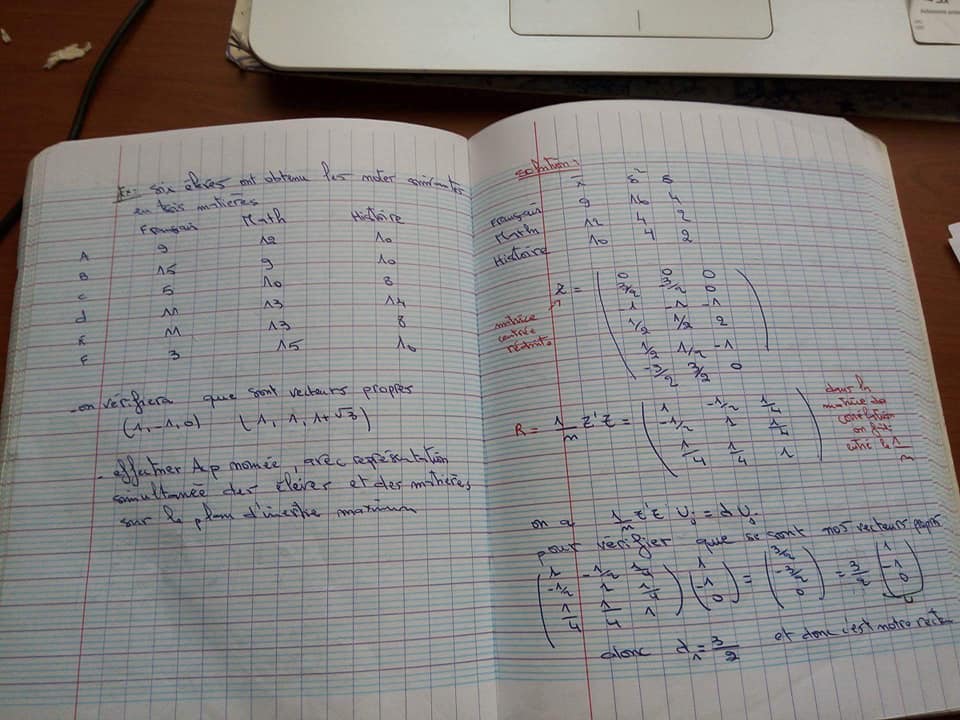 Ex: six élèves ont obtenu les notes suivantes
en trois matières
Français Math Histoire
A 9 12 10
B 15 9 10
C 5 10 8
d 11 13 14
E 11 13 8
F 3 15 10
- on vérifiera que sont vecteurs propres
(1, -1, 0) (1, 1, 1+√3)
- effectuer Acp normée, avec représentation
simultanée des élèves et des matières,
sur le plan d'inertie maximum
solution:
x̄ s² s
Français 9 16 4
Math 12 4 2
Histoire 10 4 2
Z = ( 0 0 0
3/2 -3/2 0
-1 -1 -1
1/2 1/2 2
1/2 1/2 -1
-3/2 3/2 0 )
matrice
centrée
réduite
R = 1/m Z'Z = ( 1 -1/2 1/4
-1/2 1 1/4
1/4 1/4 1 )
dans la
matrice de
corrélation
on fait
1
m
on a 1/m Z'Z Uj = d Uj.
pour vérifier que se sont nos vecteurs propres
( 1 -1/2 1/4
-1/2 1 1/4
1/4 1/4 1 ) ( 1
-1
0 ) = ( 3/2
-3/2
0 ) = 3/2 ( 1
-1
0 )
U
donc d1 = 3/2 et donc c'est notre vect